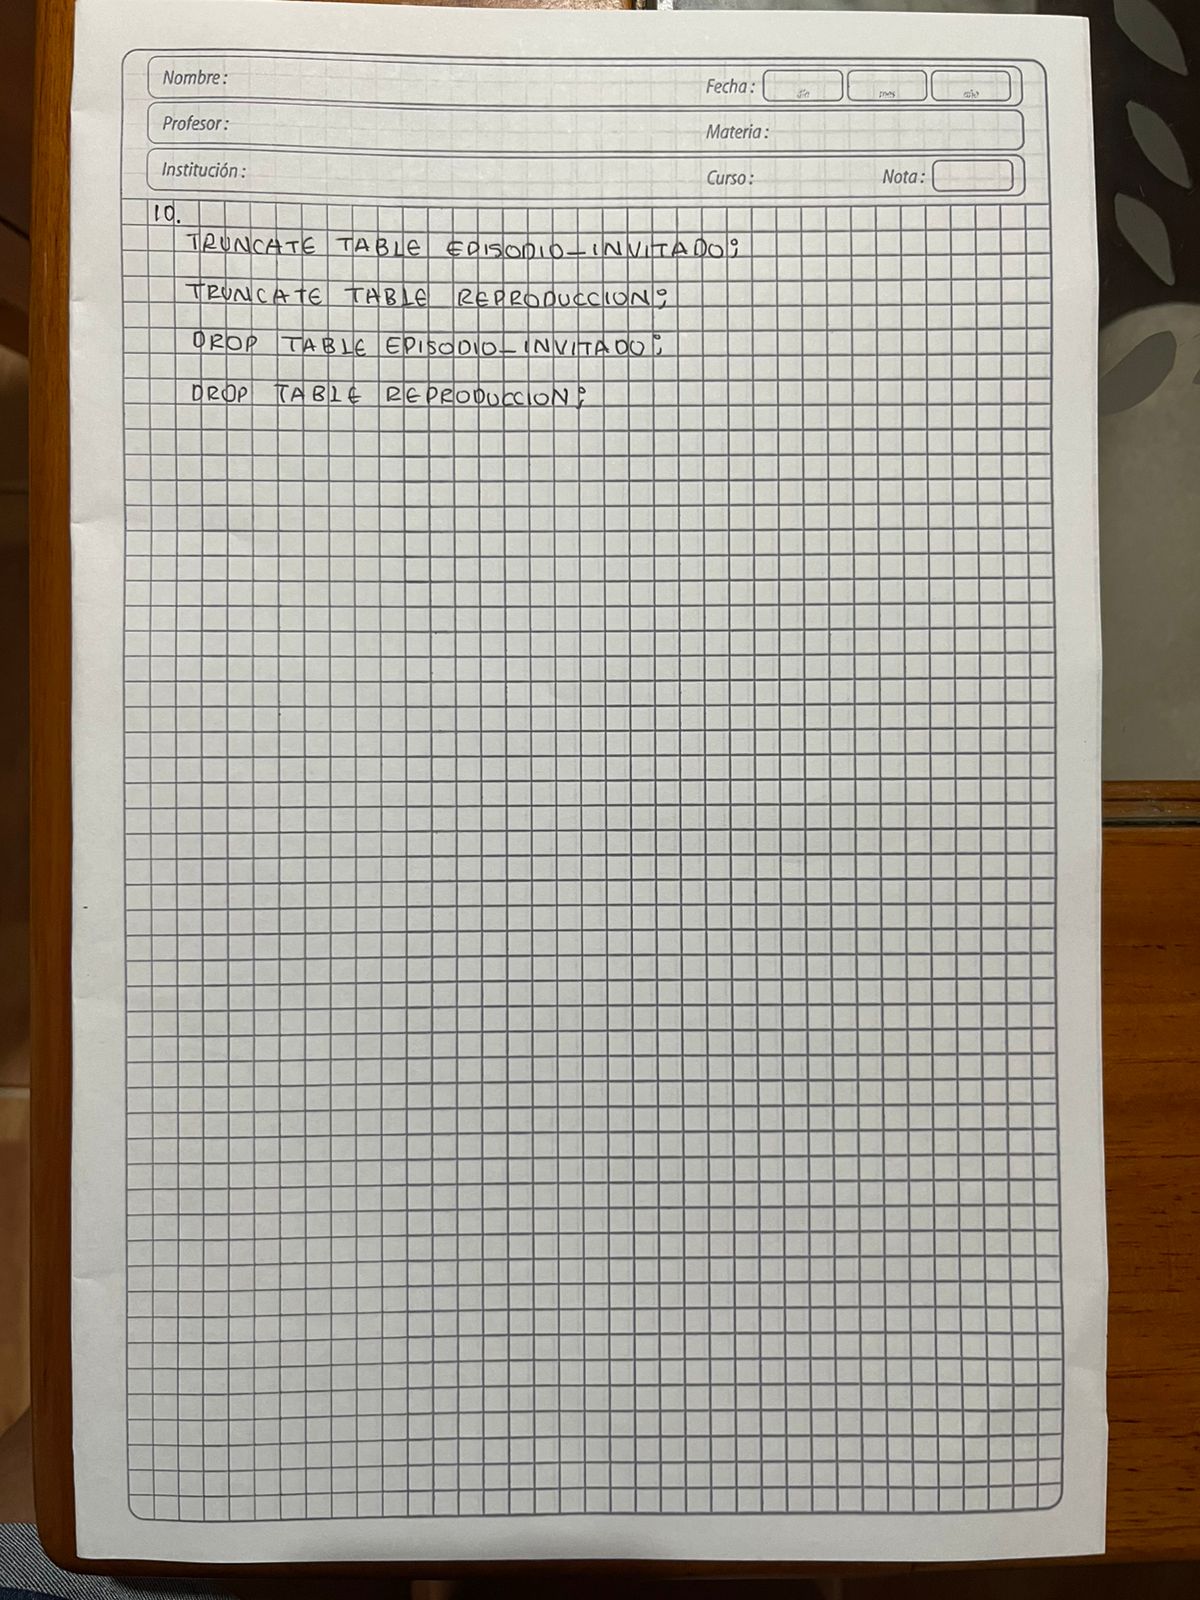 Nombre:
Fecha:
día mes año
Profesor:
Materia:
Institución:
Curso:
Nota:
10.
TRUNCATE TABLE EPISODIO_INVITADO;
TRUNCATE TABLE REPRODUCCION;
DROP TABLE EPISODIO_INVITADO;
DROP TABLE REPRODUCCION;